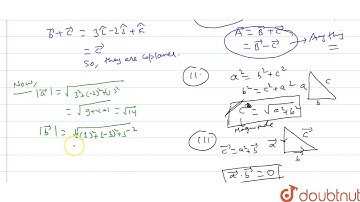 b⃗ + c⃗ = 3î - 2ĵ + k̂
= c⃗
So, they are coplanar.
Now,
|a⃗| = √3²+(-2)²+1²
= √9+4+1 = √14
|b⃗| = √(1)²+(-3)²+5²
A⃗ = B⃗ + C⃗
= B⃗ - C⃗
Any thing
(ii)
a² = b² + c²
b² = c² + a²
c = √a²+b²
Magnitude
a
c
b
(iii)
c⃗ = a⃗ + b⃗
a⃗
c⃗
b⃗
a⃗ · b⃗ = 0
doubtnut